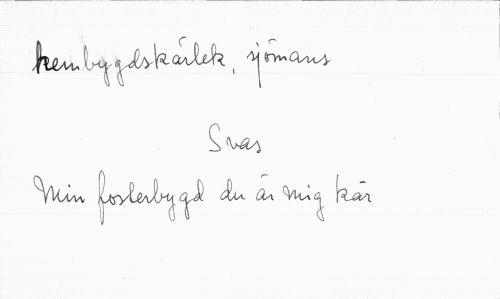 hembygdskärlek, sjömans
Svas
Min fosterbygd du är mig kär